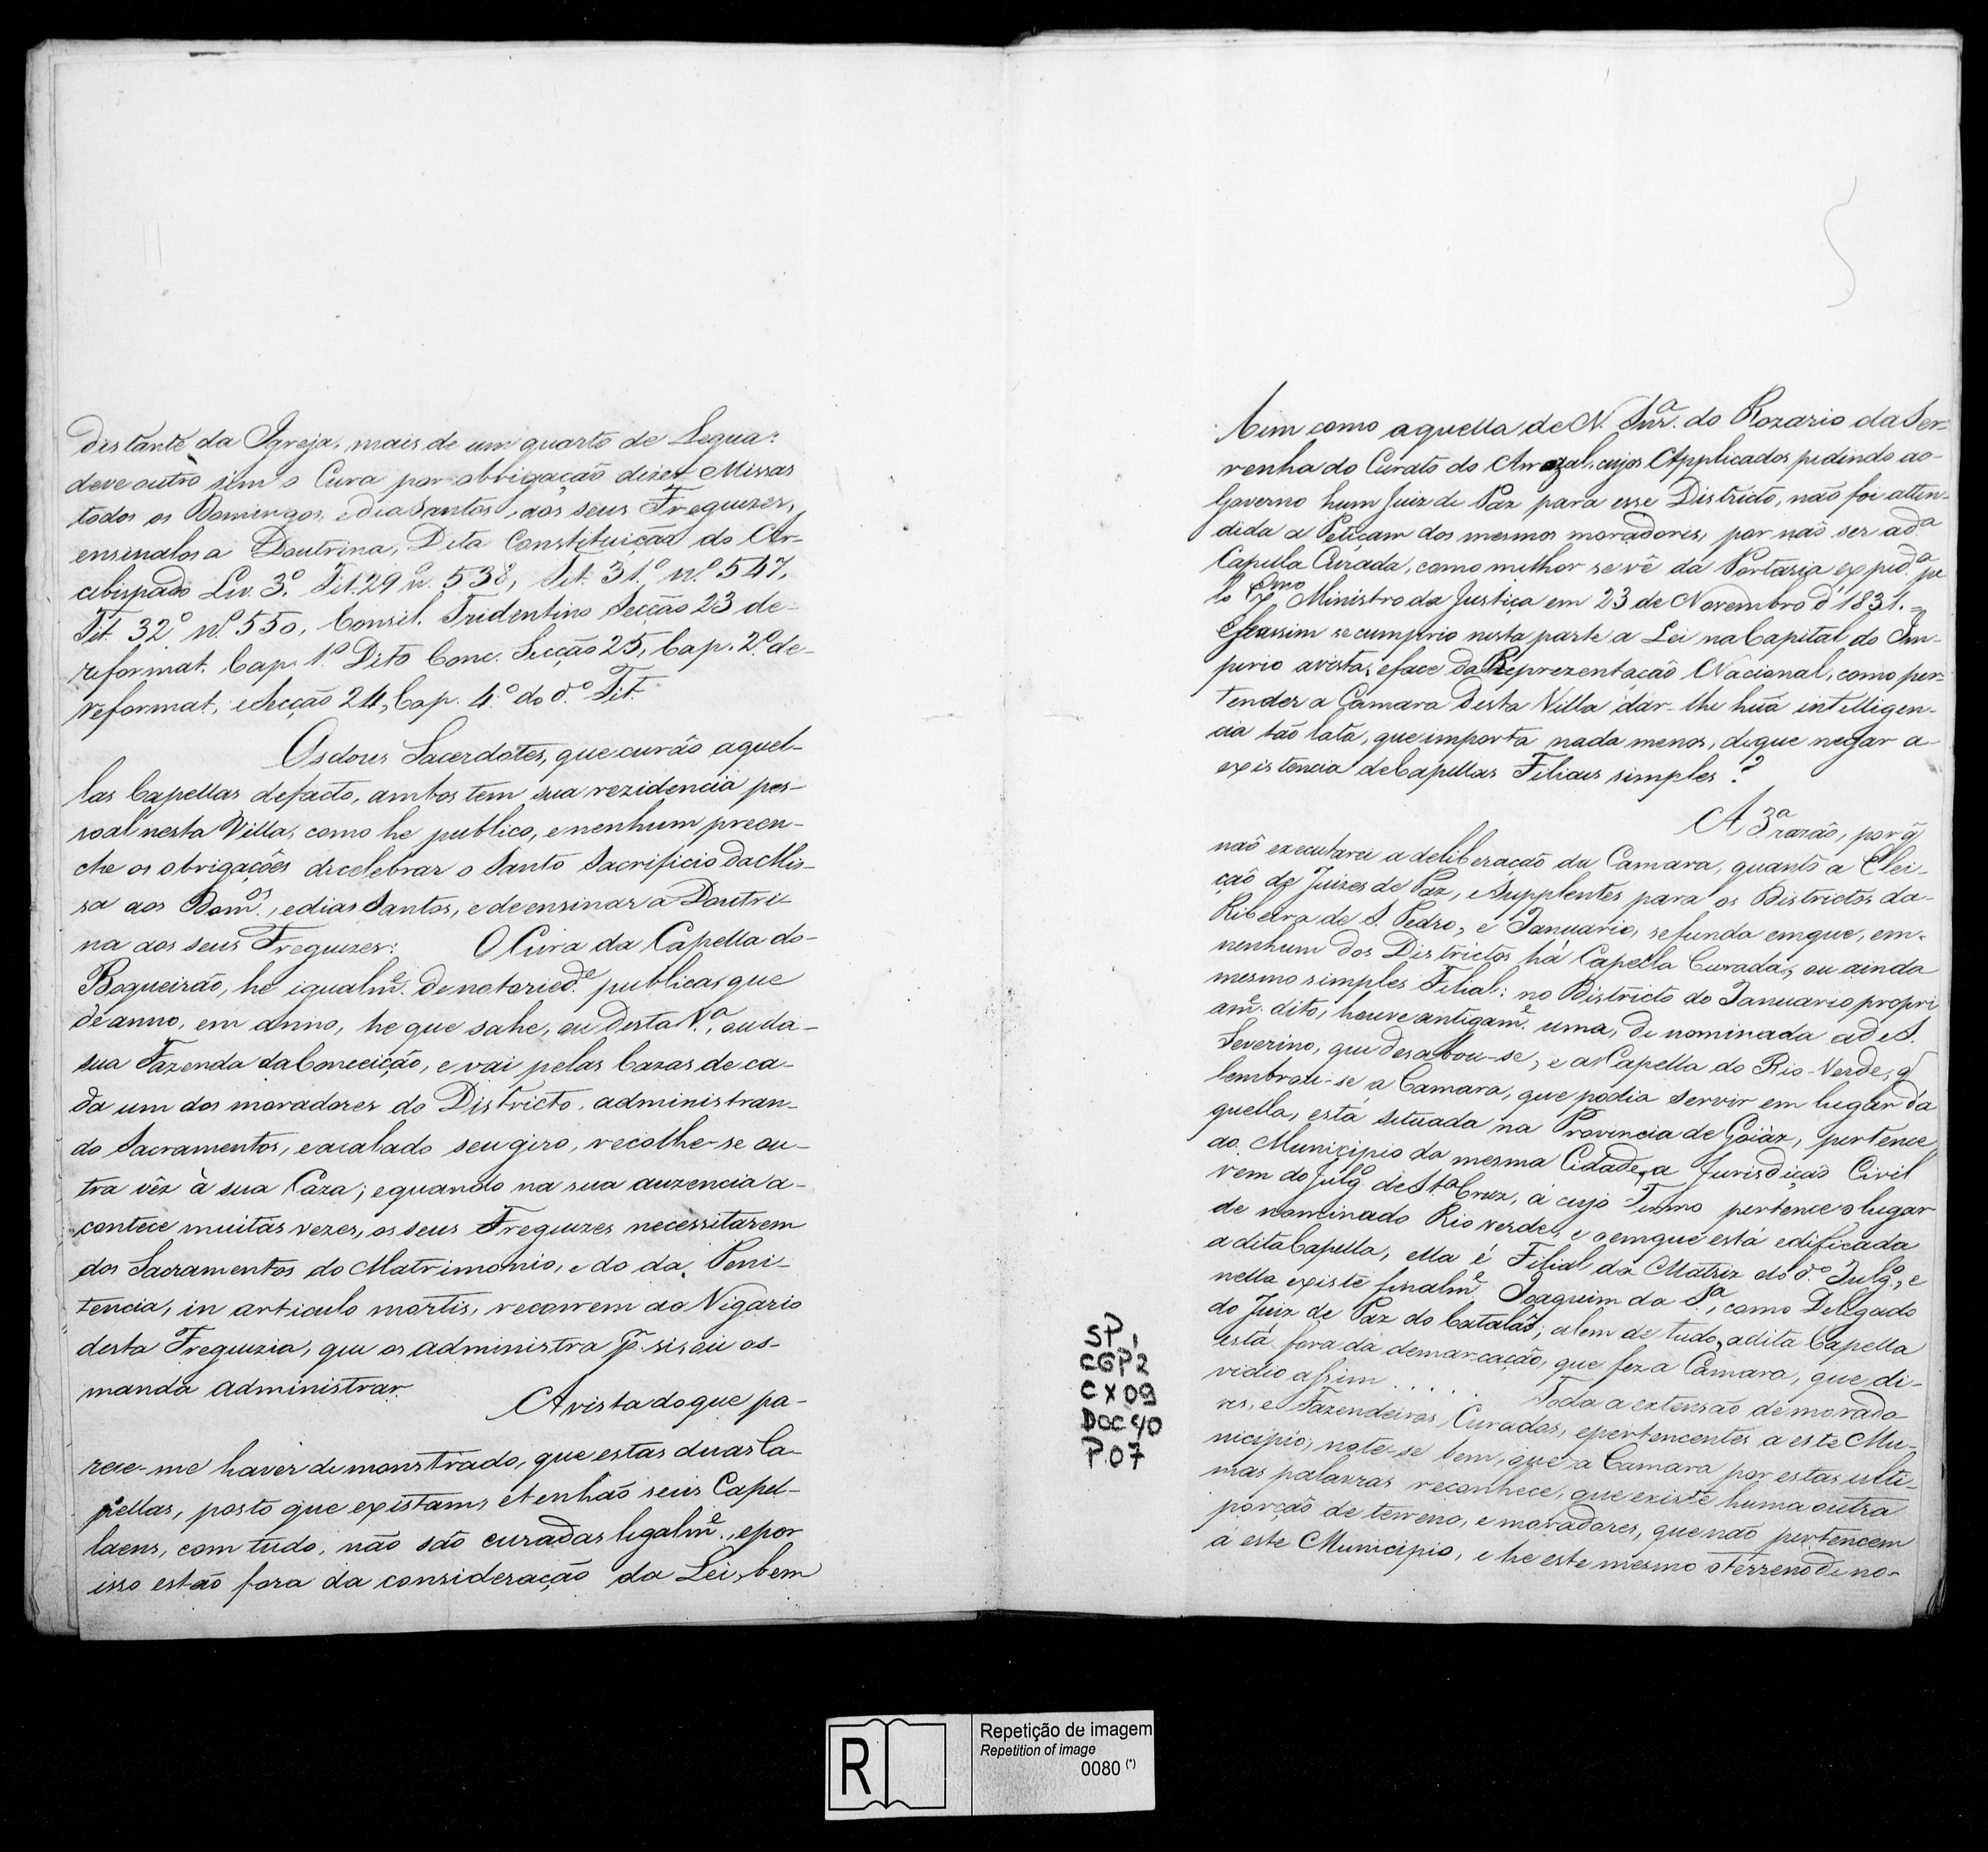 distante da Igreja, mais de um quarto de Legua:
deve outro sim o Cura por obrigação dizer Missas
todos os Domingos, e dias Santos, aos seus Freguezes,
ensinalos a Doutrina, Dita Constituição do Ar-
cebispado Liv. 3.º Tit. 29 n.º 538, Tit. 31.º n.º 547,
Tit. 32.º n.º 550, Consil. Tridentino Secção 23 de-
reformat. Cap. 1.º Dito Conc. Secção 25, Cap. 2.º de-
reformat, e Secção 24, Cap. 4.º do d.º Tit.
Os dous Sacerdotes, que curão aquel-
las Capellas de facto, ambos tem sua rezidencia pes-
soal nesta Villa, como he publico, e nenhum preen-
che os obrigações de celebrar o Santo Sacrificio da Mis-
sa aos Dom.os, e dias Santos, e de ensinar a Doutri-
na aos seus Freguezes: O Cura da Capella do-
Boqueirão, he igualm.e de notoried.e publica, que
de anno, em anno, he que sahe, ou desta V.a, ou da-
sua Fazenda da Conceição, e vai pelas Cazas de ca-
da um dos moradores do Districto, administran-
do Sacramentos, e acabado seu giro, recolhe-se ou-
tra vêz à sua Caza; e quando na sua auzencia a-
contece muitas vezes, os seus Freguezes necessitarem
dos Sacramentos do Matrimonio, e do da Peni-
tencia, in articulo mortis, recorrem ao Vigario
desta Freguezia, que os administra p.r si, ou os-
manda administrar.
A vista do que pa-
rece-me haver demonstrado, que estas duas Ca-
pellas, posto que existam, e tenhão seus Capel-
laens, com tudo, não são curadas legalm.e, e por
isso estão fora da consideração da Lei, bem
bem como aquella de N. Snr.a do Rozario da Ser-
renha do Curato do Arrozal, cujos Applicados pedindo ao-
Governo hum Juiz de Paz para esse Districto, não foi atten-
dida a Petiçam dos mesmos moradores, por não ser a d.a
Capella Curada, como melhor se vê da Portaria exped.a pe
lo Ex.mo Ministro da Justiça em 23 de Novembro d'1831. =
E se assim se cumprio nesta parte a Lei na Capital do Im-
perio a vista, e face da Reprezentação Nacional, como per-
tender a Camara desta Villa dar-lhe hũa intelligen-
cia tão lata, que importa nada menos, de que negar a-
existencia de Capellas Filiaes simples?
A 3.a razão, por q̃
não executarei a deliberação da Camara, quanto a Elei-
ção de Juizes de Paz, e Supplentes para os Districtos da-
Ribeira de S. Pedro, e Januario, se funda em que, em-
nenhum dos Districtos há Capella Curada, ou ainda
mesmo simples Filial: no Districto do Januario propri
am.e dito, houve antigam.e uma, denominada a de S.
Severino, que desabou-se, e a Capella do Rio-Verde, q̃
lembrou-se a Camara, que podia servir em lugar d'a
quella, está situada na Provincia de Goiàz, pertence
ao Municipio da mesma Cidade, a Jurisdição Civil
vem do Julg.o de S.ta Cruz, á cujo Termo pertence o lugar
denominado Rio verde, e o em que está edificada
a dita Capella, ella é Filial da Matriz do d.o Julg.o, e
nella existe finalm.e Joaquim da S.a, como Delegado
do Juiz de Paz do Catalão; alem de tudo, a dita Capella
está fora da demarcação, que fez a Camara, que di-
vidio assim . . . . . Toda a extensão de morado-
res, e Fazendeiros Curados, e pertencentes a este Mu-
nicipio; note-se bem, que a Camara por estas ulti-
mas palavras reconhece, que existe huma outra
porção de terreno, e moradores, que não pertencem
á este Municipio, e he este mesmo o terreno deno-
SP 1
CGP2
CX09
DOC 40
P.07
R
Repetição de imagem
Repetition of image
0080 (*)